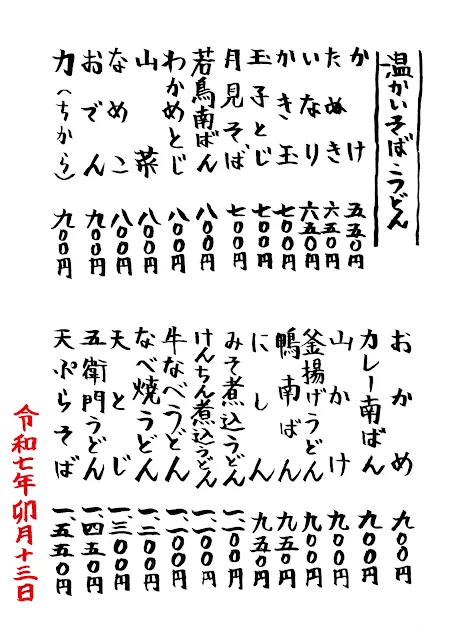 温かいそば・うどん
かけ 五五〇円
たぬき 六五〇円
いなり 六五〇円
かき玉 七〇〇円
玉子とじ 七〇〇円
月見そば 七〇〇円
若鳥南ばん 八〇〇円
わかめとじ 八〇〇円
山菜 八〇〇円
なめこ 八〇〇円
おでん 九〇〇円
力(ちから) 九〇〇円
おかめ 九〇〇円
カレー南ばん 九〇〇円
山かけ 九〇〇円
釜揚げうどん 九〇〇円
鴨南ばん 九五〇円
にしん 九五〇円
みそ煮込うどん 一、一〇〇円
けんちん煮込うどん 一、一〇〇円
牛なべうどん 一、一〇〇円
なべ焼うどん 一、二〇〇円
天とじ 一、三〇〇円
五衛門うどん 一、四五〇円
天ぷらそば 一、五五〇円
令和七年卯月十三日